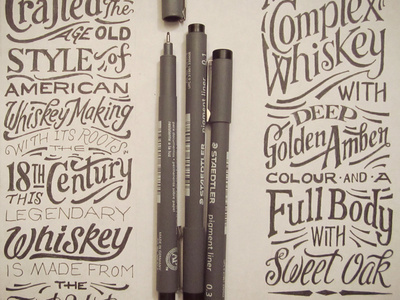 Crafted In The
AGE OLD
STYLE of
AMERICAN
Whiskey Making
WITH ITS ROOTS
IN THE
18TH Century
THIS
LEGENDARY
Whiskey
IS MADE FROM
THE
Complex
Whiskey
WITH
DEEP
Golden Amber
COLOUR AND A
Full Body
WITH
Sweet Oak
STAEDTLER
pigment liner
pigment liner 0.3